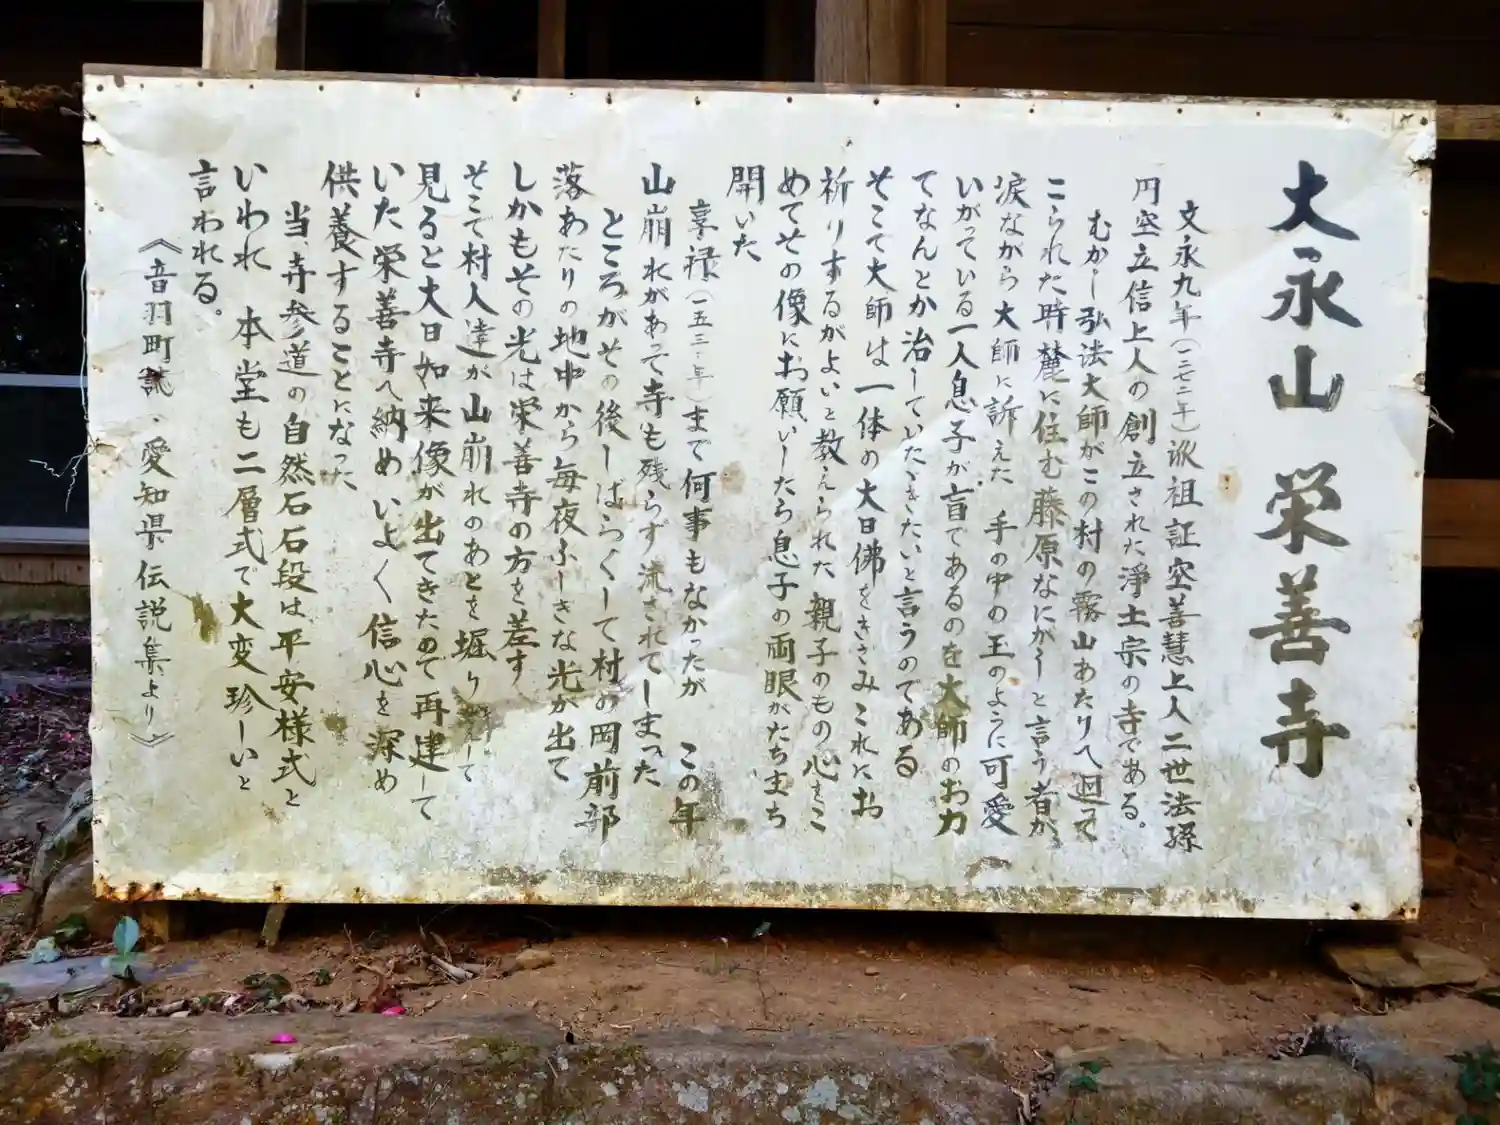 大永山 栄善寺
文永九年(一二七二年)派祖証空善慧上人二世法孫
円空立信上人の創立された淨土宗の寺である。
むかし弘法大師がこの村の霧山あたりへ廻って
こられた時麓に住む藤原なにがしと言う者が
涙ながら大師に訴えた 手の中の玉のように可愛
いがっている一人息子が盲であるのを大師のお力
てなんとか治していたゞきたいと言うのである
そこで大師は一体の大日佛をきざみこれにお
祈りするがよいと教えられた 親子のもの心をこ
めてその像にお願いしたら息子の両眼がたちまち
開いた
享禄(一五三・年)まで何事もなかったが この年
山崩れがあって寺も残らず流されてしまった
ところがその後しばらくして村の岡前部
落あたりの地中から毎夜ふしぎな光が出て
しかもその光は栄善寺の方を差す
そこで村人達が山崩れのあとを堀り して
見ると大日如来像が出てきたので再建して
いた栄善寺へ納めいよく信心を深め
供養することになった
当寺参道の自然石石段は平安様式と
いわれ 本堂も二層式で大変珍しいと
言われる。
《音羽町誌、愛知県伝説集より》